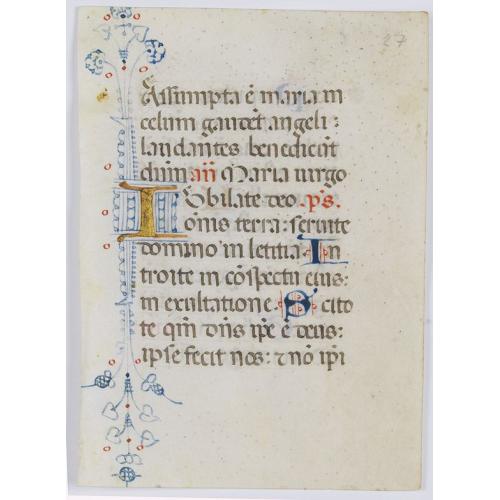 27
Assumpta ē maria in
celum gaudēt angeli:
laudantes benedicūt
dnūm añ Maria uirgo
Iubilate deo p̄s.
omnis terra: seruite
domino in letitia In
troite in cōspectu eius:
in exultatione Scito
te qm̄ dn̄s ip̄e ē deus:
ipse fecit nos: ⁊ nō ipi